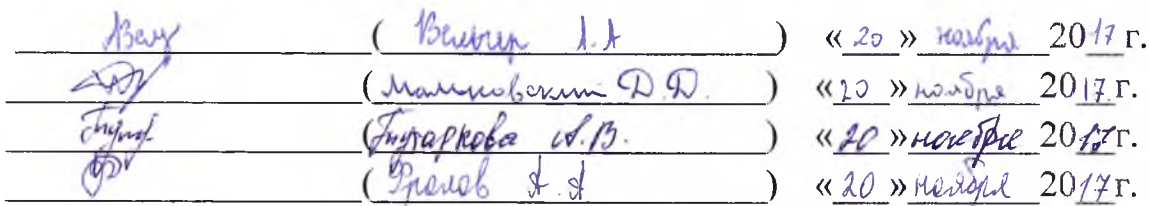 ( Вельгер А.А ) « 20 » ноября 2017 г.
( Малиновский Д.Д. ) « 20 » ноября 2017 г.
( А.В. ) « 20 » ноября 2017 г.
( Фролов А.А ) « 20 » ноября 2017 г.